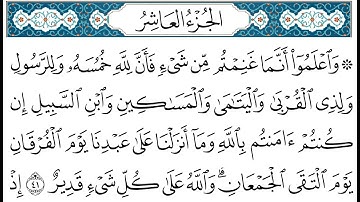 الجُزْءُ العَاشِرُ
۞ وَٱعْلَمُوٓا۟ أَنَّمَا غَنِمْتُم مِّن شَىْءٍ فَأَنَّ لِلَّهِ خُمُسَهُۥ وَلِلرَّسُولِ
وَلِذِى ٱلْقُرْبَىٰ وَٱلْيَتَـٰمَىٰ وَٱلْمَسَـٰكِينِ وَٱبْنِ ٱلسَّبِيلِ إِن
كُنتُمْ ءَامَنتُم بِٱللَّهِ وَمَآ أَنزَلْنَا عَلَىٰ عَبْدِنَا يَوْمَ ٱلْفُرْقَانِ
يَوْمَ ٱلْتَقَى ٱلْجَمْعَانِ ۗ وَٱللَّهُ عَلَىٰ كُلِّ شَىْءٍ قَدِيرٌ ٤١ إِذْ